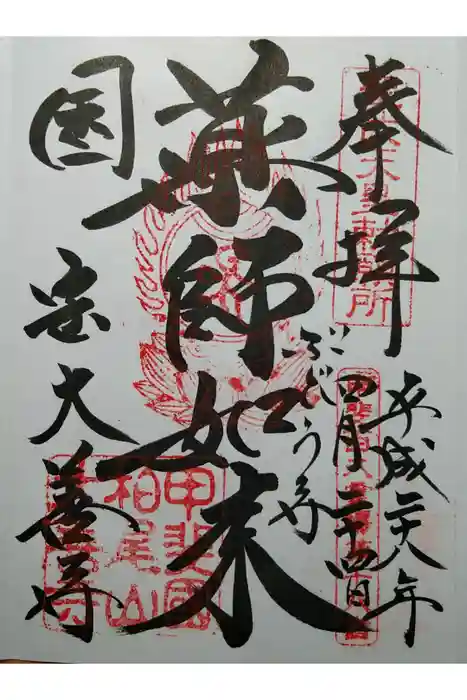 奉拝
平成二十八年
四月二十四日
ぶどう寺
薬師如来
国宝大善寺
甲斐國
柏尾山